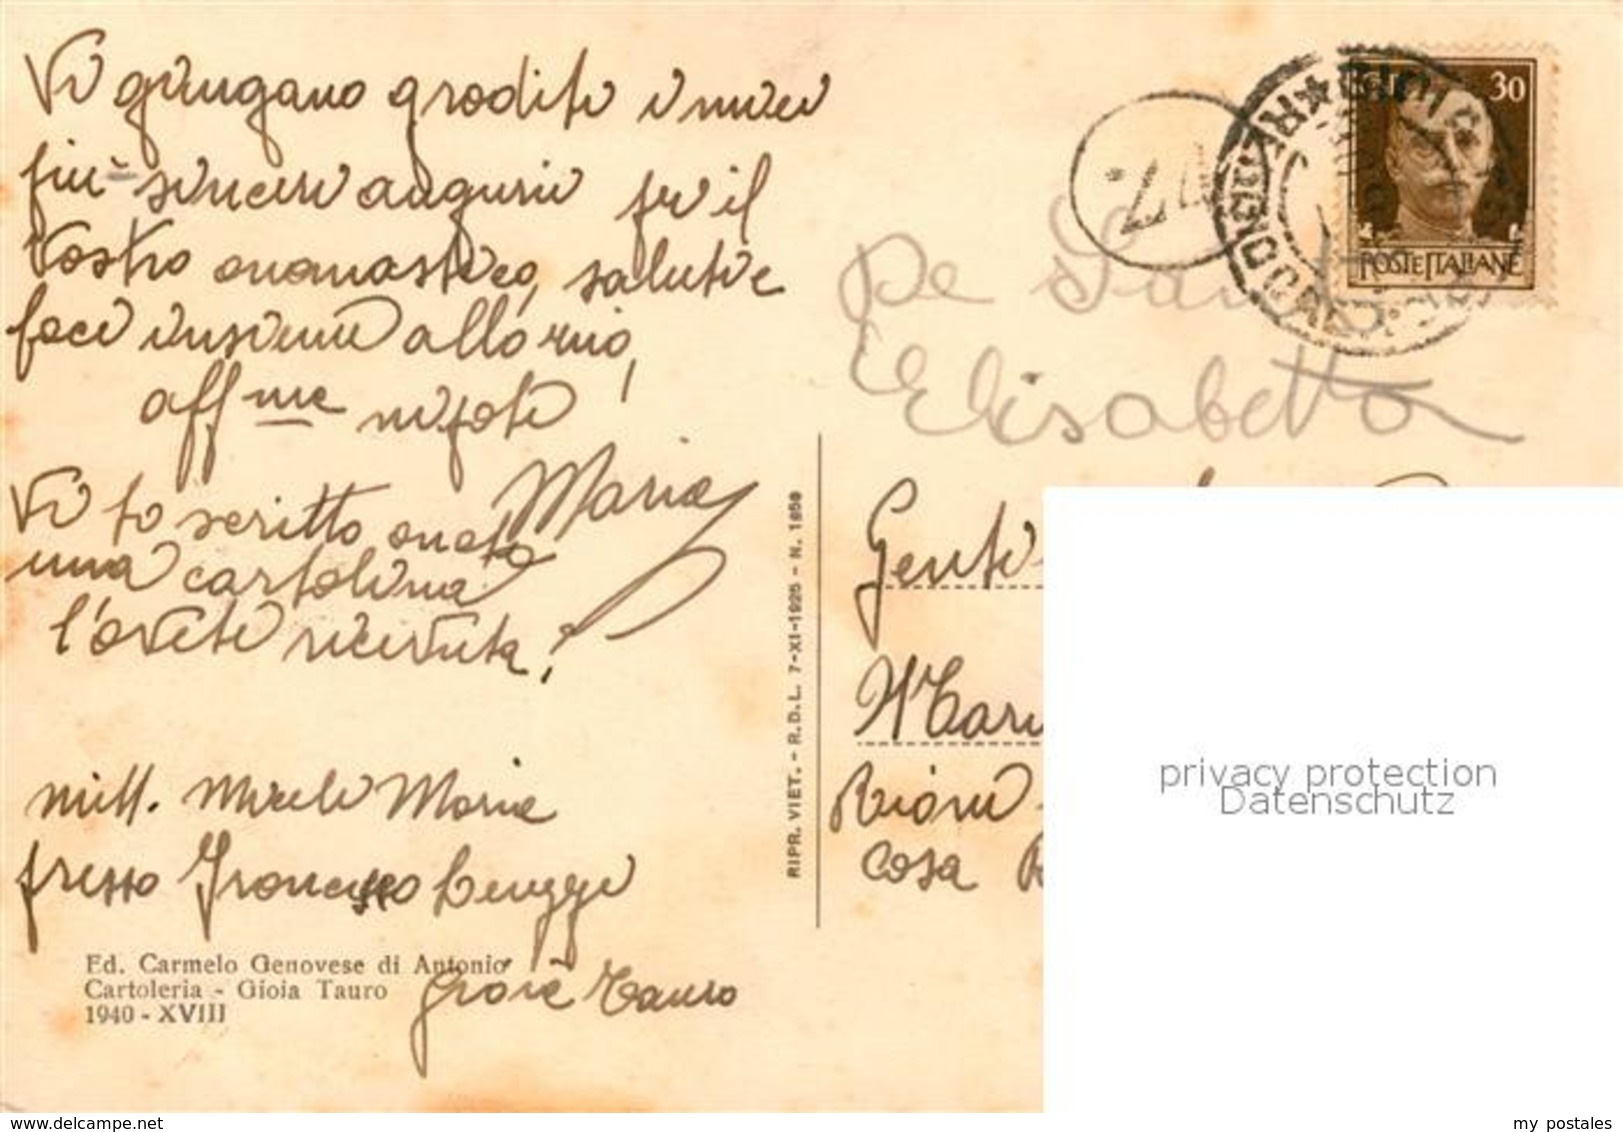 Vi giungano graditi i miei
più sinceri auguri per il
Vostro onomastico, saluti e
baci insieme allo zio,
aff me nipote
Maria
Vi ho scritto
una cartolina
l'avete ricevuta?
mitt. Maria
presso Francesco
Gioia Tauro
Ed. Carmelo Genovese di Antonio
Cartoleria - Gioia Tauro
1940 - XVIII
RIPR. VIET. - R.D.L. 7-XI-1925 - N. 1950
30
POSTE ITALIANE
De
Elisabetta
Genti
Rioni
Casa
privacy protection
Datenschutz
www.delcampe.net
my_postales